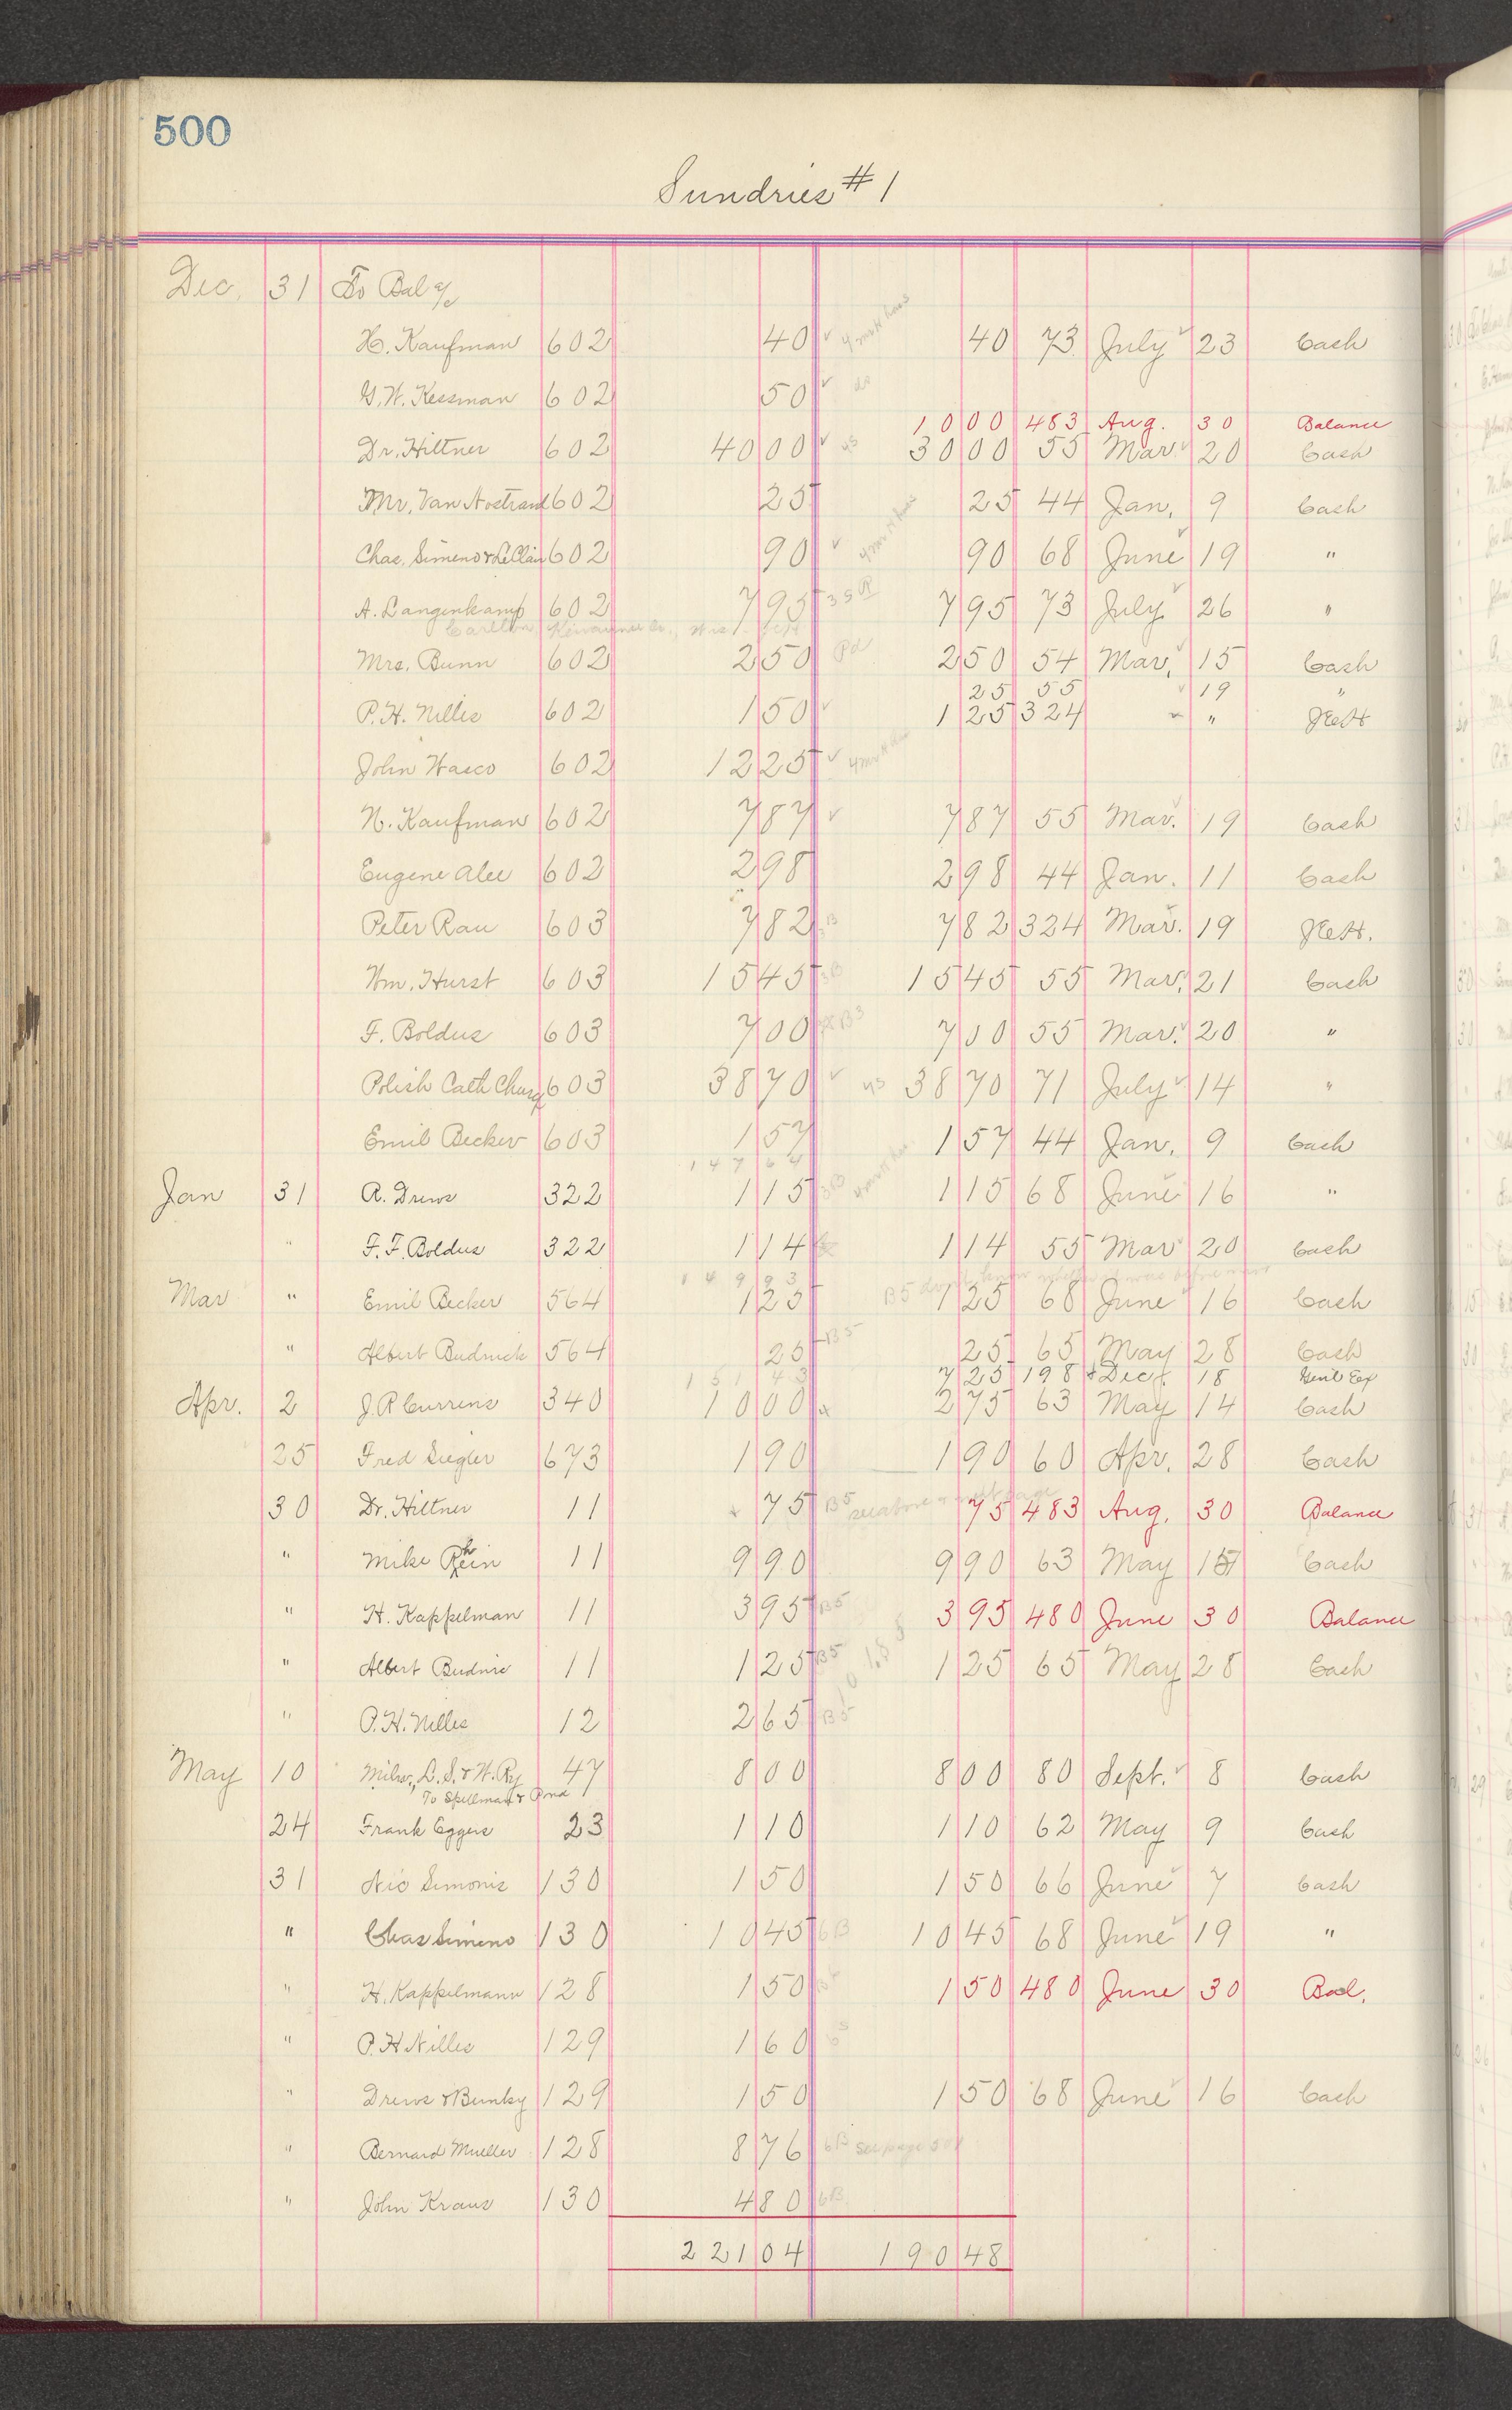 500
Sundries # 1
Dec. 31 To Bal a/c
H. Kaufman 602 40 ✓ 40 73 July ✓ 23 Cash
G. W. Kessman 602 50 ✓ do
10 00 483 Aug. 30 Balance
Dr. Hiltner 602 40 00 ✓ 30 00 55 Mar. ✓ 20 Cash
Mr. Van Nostrand 602 25 25 44 Jan. 9 Cash
Chas. Simeno & LeClair 602 90 ✓ 90 68 June ✓ 19 "
A. Langenkamp 602 7 95 7 95 73 July ✓ 26 "
Carlton, Kewaunee Co., Wis.
Mrs. Bunn 602 2 50 Pd 2 50 54 Mar. ✓ 15 Cash
25 55 ✓ 19 "
P. H. Nilles 602 1 50 ✓ 1 25 324 " "
John Wasco 602 12 25 ✓
N. Kaufman 602 7 87 ✓ 7 87 55 Mar. ✓ 19 Cash
Eugene Alee 602 2 98 2 98 44 Jan. 11 Cash
Peter Rau 603 7 82 7 82 324 Mar. ✓ 19
Wm. Hurst 603 15 45 15 45 55 Mar. ✓ 21 Cash
F. Boldus 603 7 00 7 00 55 Mar. ✓ 20 "
Polish Cath Church 603 38 70 ✓ 38 70 71 July ✓ 14 "
Emil Becker 603 1 57 1 57 44 Jan. 9 Cash
147 64
Jan 31 A. Drews 322 1 15 1 15 68 June ✓ 16 "
" F. F. Boldus 322 1 14 1 14 55 Mar ✓ 20 Cash
149 93
Mar " Emil Becker 564 1 25 B5 1 25 68 June ✓ 16 Cash
" Albert Budnick 564 25 B5 25 65 May 28 Cash
151 43 7 25 198 Dec. 18 Genl Exp
Apr. 2 J. P. Currens 340 10 00 2 75 63 May 14 Cash
25 Fred Siegler 673 1 90 1 90 60 Apr. 28 Cash
30 Dr. Hiltner 11 75 B5 75 483 Aug. 30 Balance
" Mike Rhein 11 9 90 9 90 63 May 15 Cash
" H. Kappelman 11 3 95 B5 3 95 480 June 30 Balance
" Albert Budnic 11 1 25 B5 1 25 65 May 28 Cash
" P. H. Nilles 12 2 65 B5
May 10 Milw., L. S. & W. Ry 47 8 00 8 00 80 Sept. ✓ 8 Cash
To Spellman & Pond
24 Frank Eggers 23 1 10 1 10 62 May 9 Cash
31 Nic Simonis 130 1 50 1 50 66 June ✓ 7 Cash
" Chas Simeno 130 10 45 6B 10 45 68 June ✓ 19 "
" H. Kappelmann 128 1 50 1 50 480 June 30 Bal.
" P. H Nilles 129 1 60
" Drews & Bunky 129 1 50 1 50 68 June ✓ 16 Cash
" Bernard Mueller 128 8 76 6B See page 501
" John Kraus 130 4 80 6B
221 04 190 48